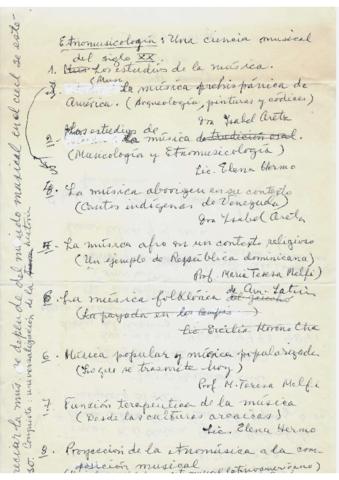 Etnomusicología: Una ciencia musical
del siglo XX.
1. Los estudios de la música.
La música prehispánica de
América. (Arqueología, pinturas y códices)
Dra Isabel Aretz
Los estudios de la música tradición oral.
(Musicología y Etnomusicología)
Lic. Elena Hermo
La música aborigen en su contexto
(Cantos indígenas de Venezuela)
Dra Isabel Aretz
La música afro en un contexto religioso
(Un ejemplo de República dominicana)
Prof. María Teresa Melfi
La música folklórica de Am. Latin
(La payada en
Lic Ercilia Moreno Cha
6. Música popular y música popularizada
(Lo que se trasmite hoy)
Prof M. Teresa Melfi
Función terapéutica de la música
(Desde las culturas arcaicas)
Lic. Elena Hermo
8. Proyección de la etnomúsica a la com-
posición musical
latinoamericano)
del mundo musical en el cual se
universalización de la historia